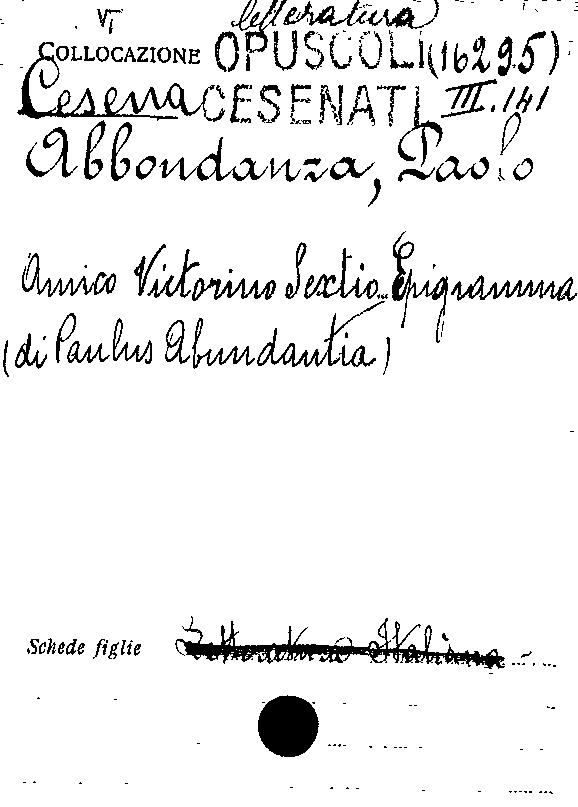 VI letteratura
COLLOCAZIONE OPUSCOLI (16295)
Cesena CESENATI III.141
Abbondanza, Paolo
Amico Victorino Sextio... Epigramma
(di Paulus Abundantia)
Schede figlie Letteratura Italiana